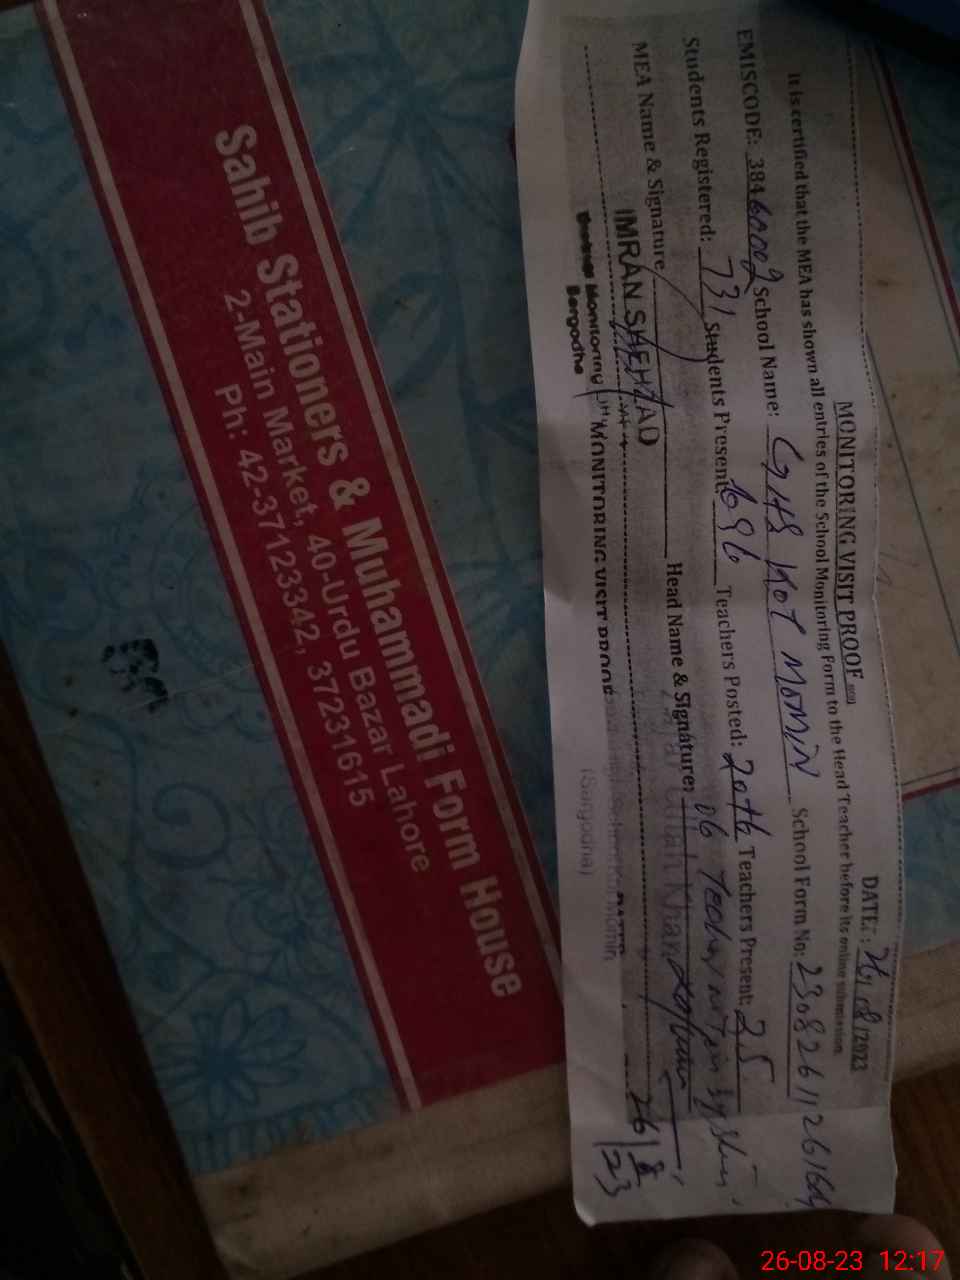 Sahib Stationers & Muhammadi Form House
2-Main Market, 40-Urdu Bazar Lahore
Ph: 42-37123342, 37231615
MONITORING VISIT PROOF
DATE: 26/08/2023
It is certified that the MEA has shown all entries of the School Monitoring Form to the Head Teacher before its online submission.
EMISCODE: 38460002 School Name: GHS KOT MOMIN School Form No: 230826112616
Students Registered: 731 Students Present 696 Teachers Posted: Teachers Present: 25
06
MEA Name & Signature Head Name & Signature:
IMRAN SHEHZAD
Monitoring
Sargodha
MONITORING VISIT PROOF
(Sargodha)
26/8/23
26-08-23 12:17